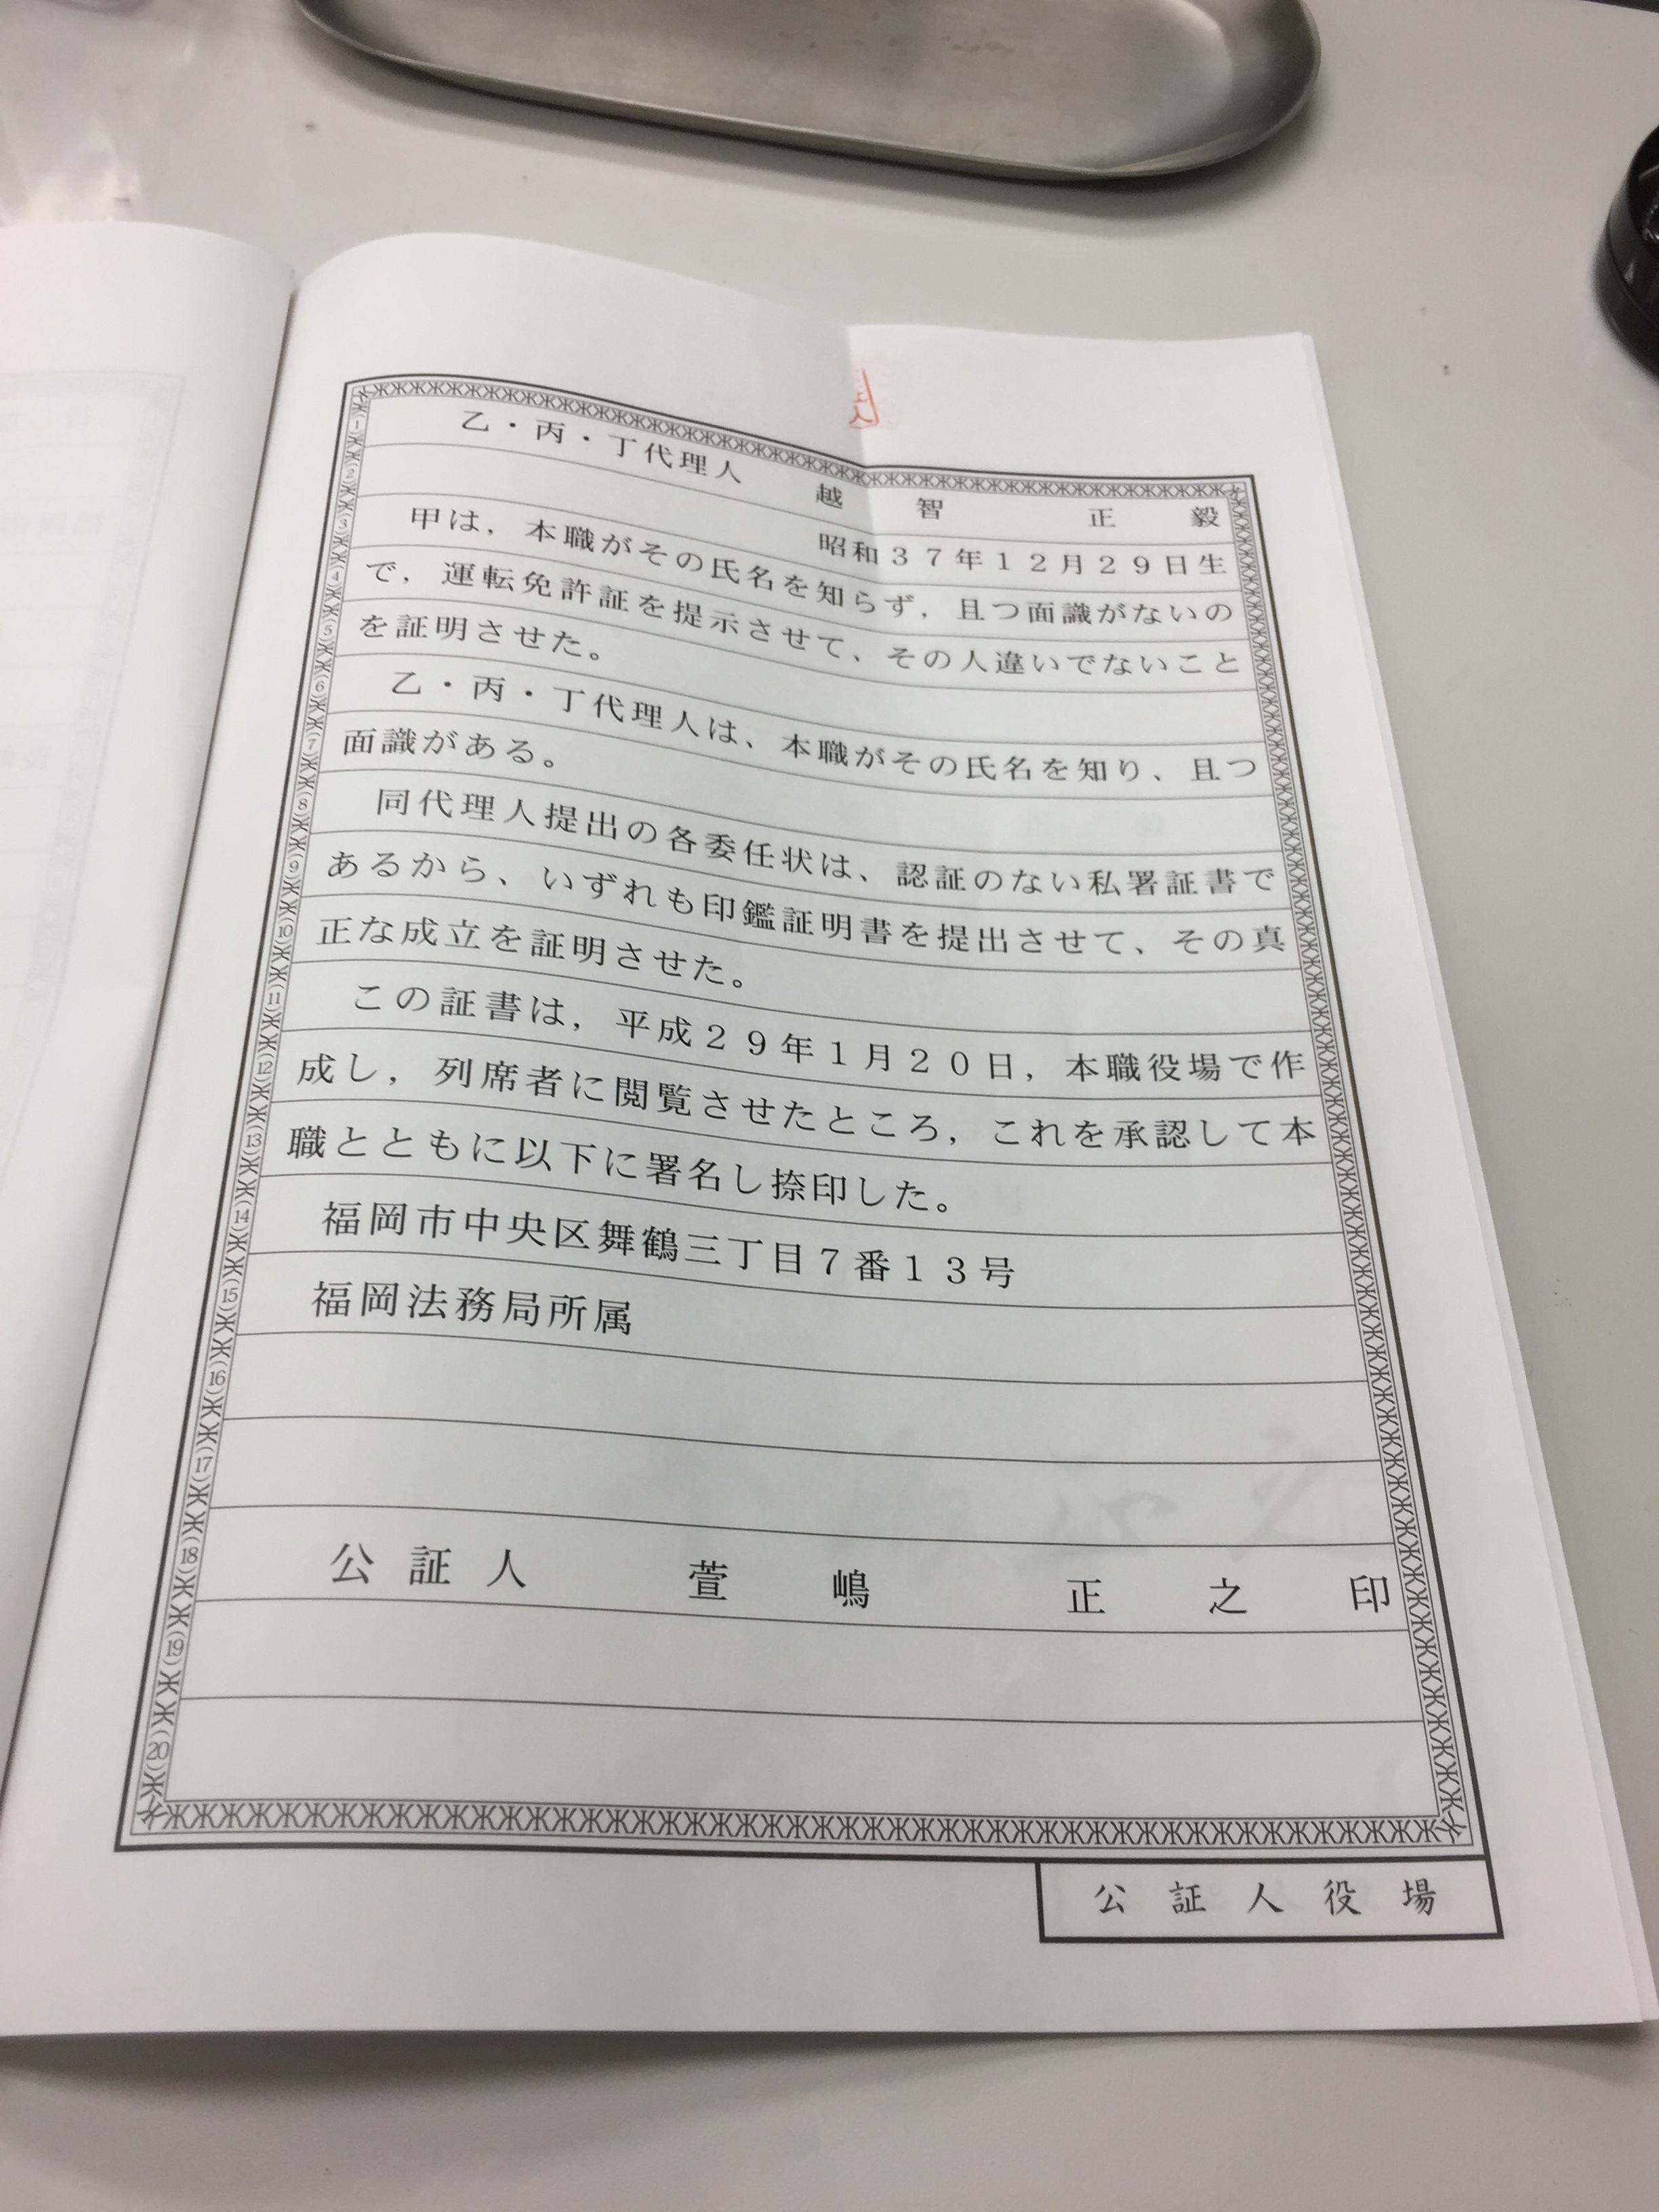 乙・丙・丁代理人　越　智　　正　毅
昭和３７年１２月２９日生
甲は，本職がその氏名を知らず，且つ面識がないの
で，運転免許証を提示させて、その人違いでないこと
を証明させた。
乙・丙・丁代理人は、本職がその氏名を知り、且つ
面識がある。
同代理人提出の各委任状は、認証のない私署証書で
あるから、いずれも印鑑証明書を提出させて、その真
正な成立を証明させた。
この証書は，平成２９年１月２０日，本職役場で作
成し，列席者に閲覧させたところ，これを承認して本
職とともに以下に署名し捺印した。
福岡市中央区舞鶴三丁目７番１３号
福岡法務局所属
公　証　人　　萱　嶋　　正　之　印
公証人役場
1
2
3
4
5
6
7
8
9
10
11
12
13
14
15
16
17
18
19
20